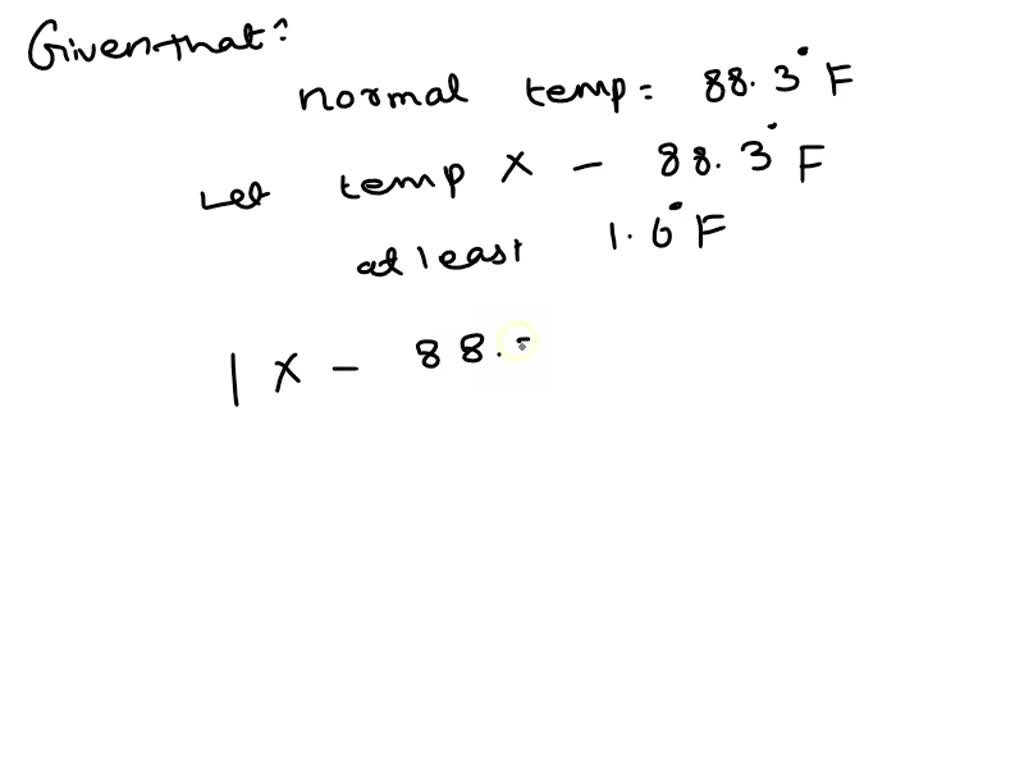 Given that:
normal temp = 88.3° F
Let temp x - 88.3° F
at least 1.6° F
| x - 88.